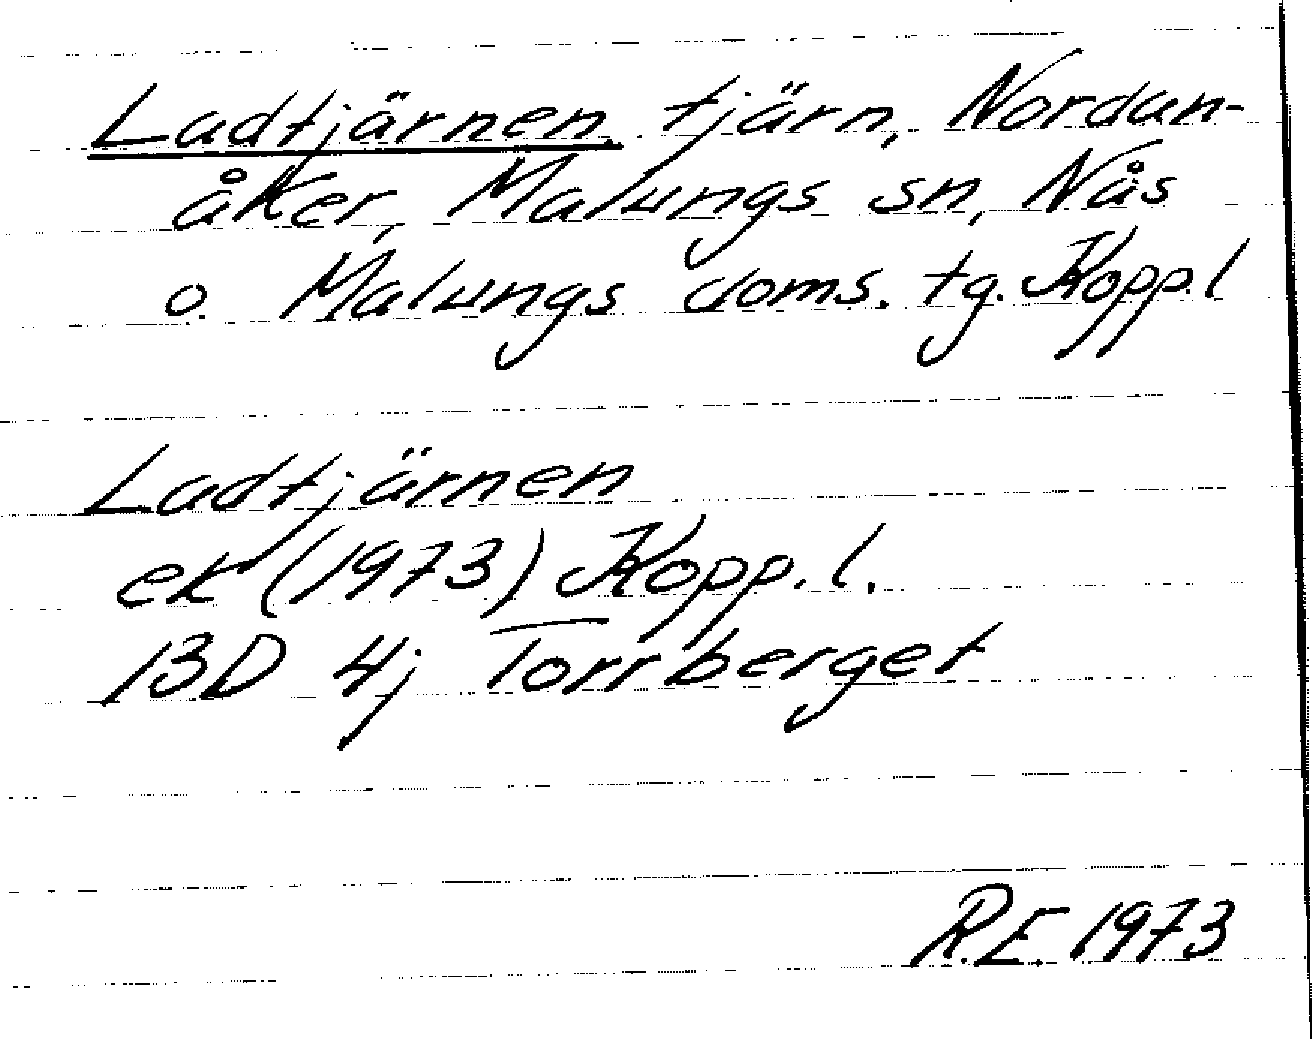 Ladtjärnen, tjärn, Nordan-
åker, Malungs sn, Nås
o. Malungs doms. tg. Kopp.l
Ladtjärnen
ek (1973) Kopp.l.
13D 4j Torrberget
R.E. 1973